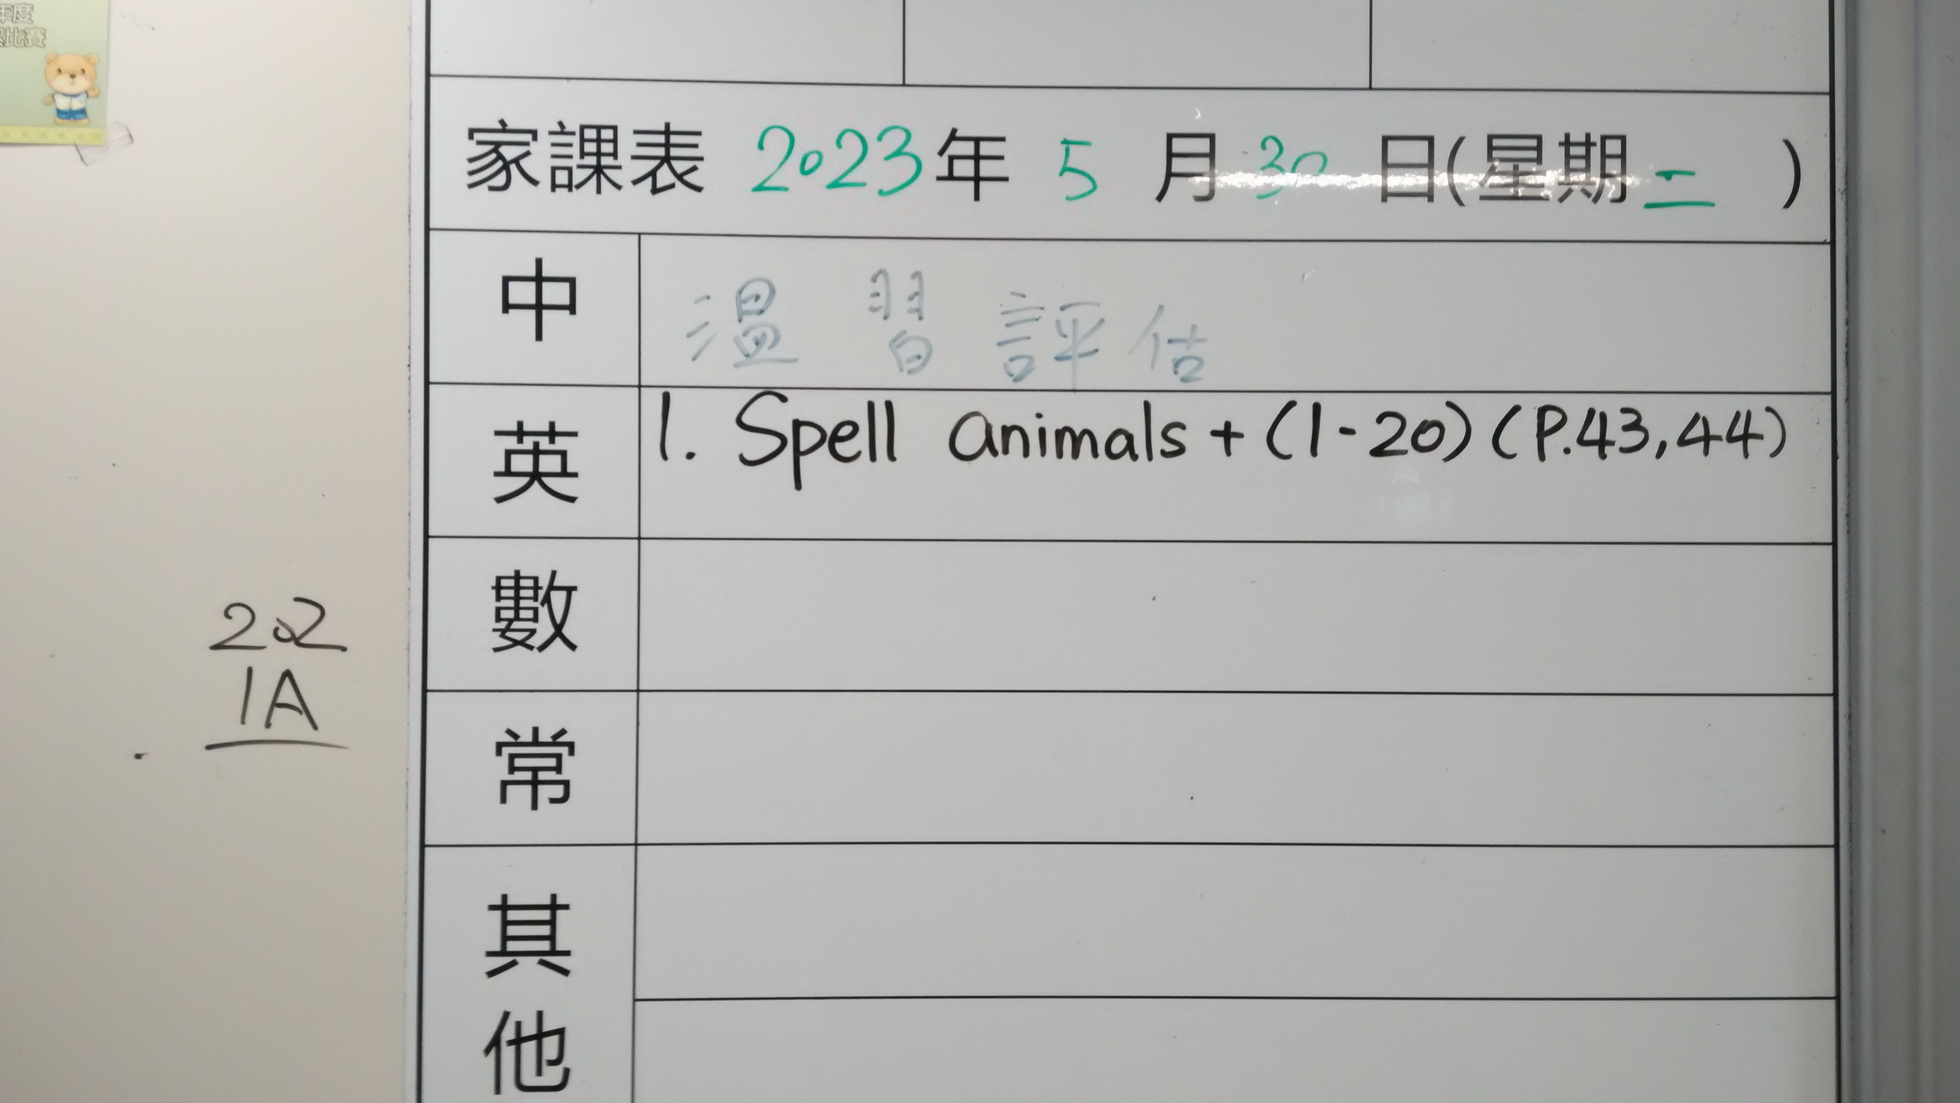 年度
比賽
家課表 2023年 5 月 30 日(星期二 )
中 温習評估
英 1. Spell animals + (1-20) (P.43,44)
數
常
其
他
202
1A